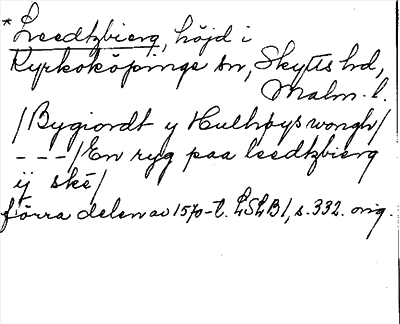 *Leedtzbierg, höjd i
Kyrkoköpinge sn, Skytts hd,
Malm. l.
/Bygiordt y Hulhøys wongh/
---/En ryg paa leedtzbierg
ij ske/
förra delen av 1570-t. LSLB1, s. 332. orig.